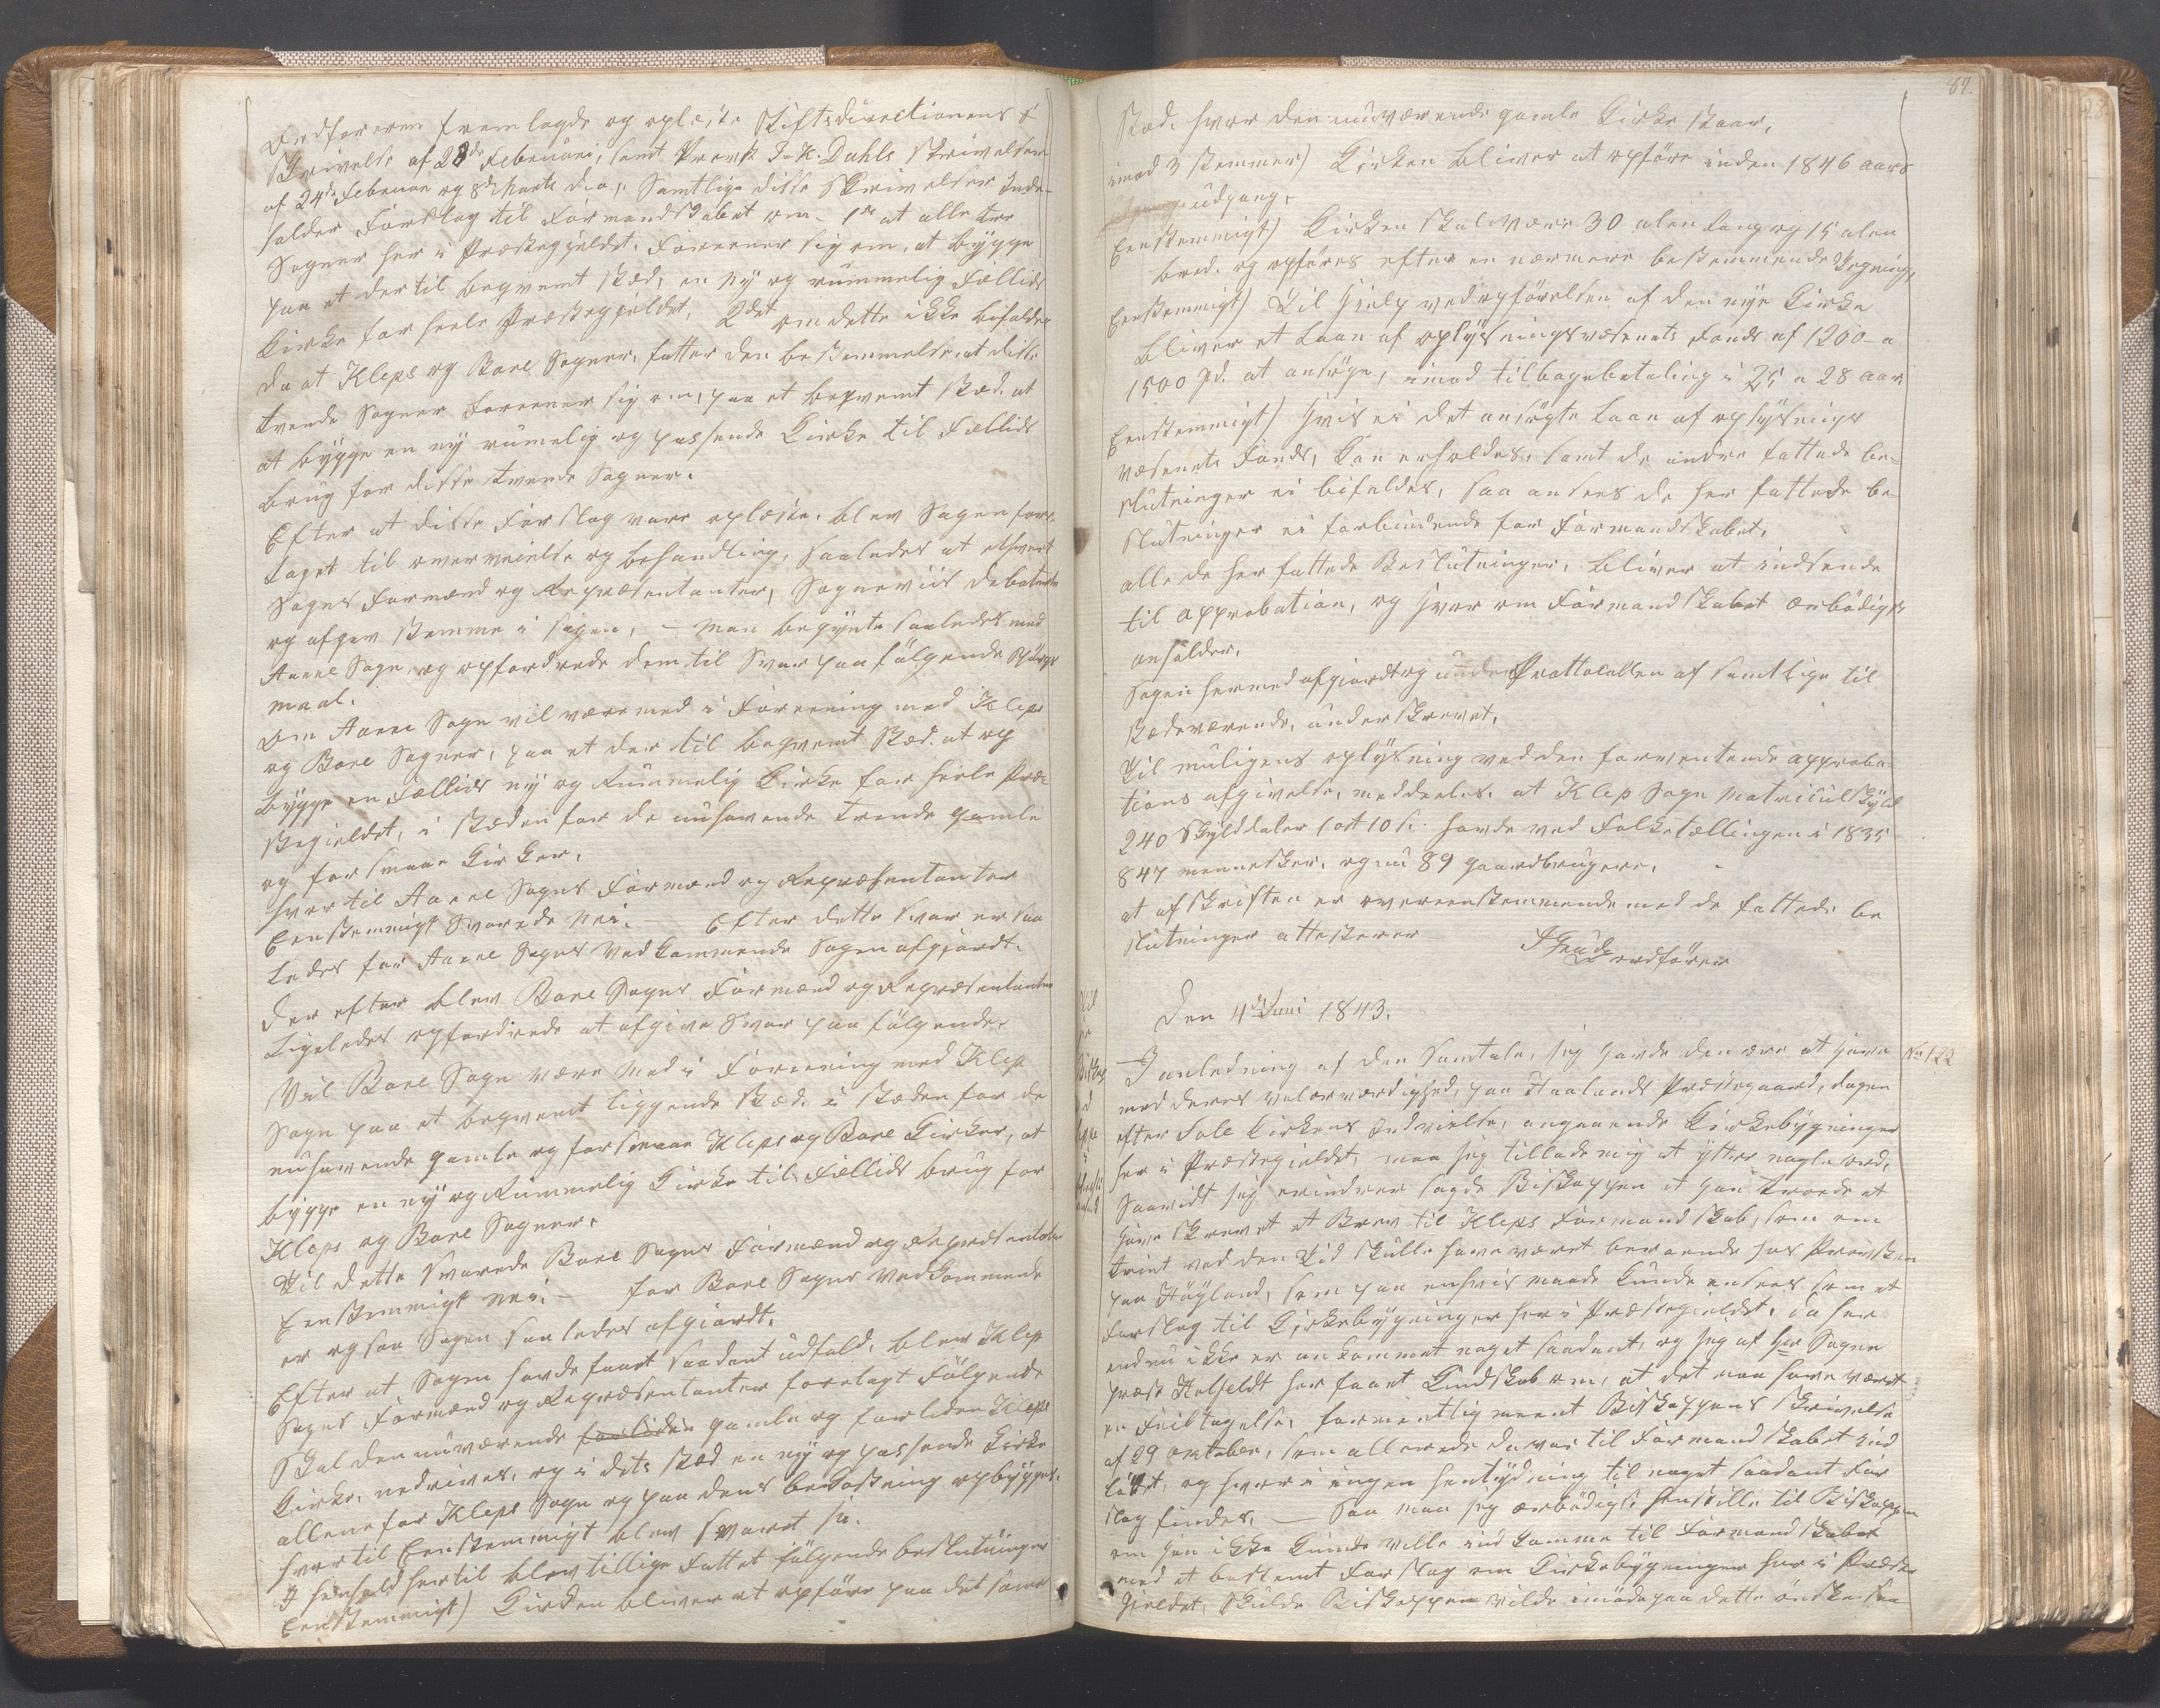 Ordføreren fremlagde og oplæste Stiftsdirectionens
Skrivelse af 28de Februari, samt Provst I. K. Dahls Skrivelser
af 24de Februar og 8de Marts d.a., Samtlige disse Skrivelser Inde-
holder Forslag til Formandskabet om 1ste at alle tre
Sogner her i Præstegjeldet, foreener sig om, at bygge
paa et dertil beqvemt Stæd, en ny og rummelig Fællids
Kirke for heele Præstegjeldet, 2det om dette ikke bifaldes
da at Kleps og Bore Sogner, fatter den bestemmelse at disse
tvende Sogner foreener sig om, paa et beqvemt Stæd at
at bygge en ny rumelig og passende Kirke til Fællids
brug for disse tvende Sogner.
Efter at disse Forslag vare oplæste, blev Sagen fore-
taget til overveielse og behandling, saaledes at ethvert
Sogns Formænd og Repræsentanter, Sogneviis debaterte
og afgav stemme i sagen, – Man begynte saaledes med
Aarre Sogn, og opfordrede dem til Svar paa følgende Spørgs
maal.
Om Aarre Sogn vil være med i Foreening med Kleps
og Bore Sogner, paa et der til beqvemt Stæd, at op
bygge en Fællids ny og Rummelig Kirke for heele Præ-
stegieldet, i stæden for de nuhavende trende gamle
og for smaae Kirker.
Hvortil Aarre Sogns Formænd og Repræsentanter
Eenstemmigt Svarede Nei. – Efter dette Svar er saa
ledes for Aarre Sogns Vedkommende Sagen afgjordt.
Der efter blev Bore Sogns Formænd og Repræsentanter
Ligeledes opfordrede at afgive Svar paa følgende,
Vil Bore Sogn være Med i Foreening med Klep
Sogn paa et beqvemt liggende Stæd, i Stæden for de
nuhavende gamle og for smaae Kleps og Bore Kirker, at
bygge en ny og Rummelig Kirke til Fællids brug for
Kleps og Bore Sogner.
Til dette Svarede Bore Sogns Formænd og Repræsentanter
Eenstemmigt Nei. – for Bore Sogns Vedkommende
er ogsaa Sagen saaledes afgiordt.
Efter at Sagen havde faaet saadant udfald, blev Klep
Sogns Formænd og Repræsentanter forelagt Følgende
Skal den nuværende forliden gamle og forliden Kleps
Kirke, nedrives, og i dets Stæd en ny og passende Kirke
allene for Kleps Sogn og paa dens bekostning opbygges.
Hvortil Eenstemmigt blev svaret ja.
I henhold hertil blev tillige Fattet følgende beslutninger
Eenstemmigt) Kirken bliver at opføre paa det samme
87.
Stæd, hvor den nuværende gamle Kirke staar,
imod 3 stemmer) Kirken bliver at opføre inden 1846 aars
udgang,
Eenstemmigt) Kirken skal være 30 alen lang og 15 alen
bred, og opføres efter en nærmere bestemmende Tegning,
Eenstemmigt) Til Hielp ved opførelsen af den nye Kirke
bliver et Laan af oplysningsvæsenets Fonds af 1200 a
1500 Spd. at ansøge, imod tilbagebetaling i 25 a 28 aar
Eenstemmigt) Hvis ei det ansøgte Laan af oplysnings
væsenets Fonds, kan erholdes, samt de andre fattede be-
slutninger ei bifaldes, saa ansees de her fattede be
slutninger ei forbindende for Formandskabet,
alle de her fattede Beslutninger, bliver at indsende
til approbation, og hvor om Formandskabet ærbødigst
anholder.
Sagen hermed afgiordt og under Prottocollen af samtlige til
stædeværende, underskrevet,
Til muligens oplysning ved den forventende approba-
tions afgivelse, meddeeles, at Klep Sogn Matriculskyld
240 Skylddaler 1 ort 10 s. havde ved Folketællingen i 1835
847 mennesker, og nu 89 gaardbrugere.
at afskriften er overeenstemmende med de fattede be
slutninger attesterer
ordfører
Den 4de Juni 1843.
No 122
I anledning af den Samtale, jeg havde den ære at have
med deres velærværdighed, paa Haalands Præstegaard, dagen
efter Sole Kirkens Indvielse, angaaende Kirkebygninger
her i Præstegieldet, maa jeg tillade mig at yttre nogle ord,
Saavidt jeg erindrer sagde Biskoppen at han troede at
have skrevet et Brev til Kleps Formandskab, som om
trint ved den Tid skulle have været beroende hos Provsten
paa Høyland, som paa en hvis maade kunde ansees som et
Forslag til Kirkebygninger her i Præstegieldet. Da her
endnu ikke er ankommet noget saadant, og jeg af Hr Sogne
præst her faaet Kundskab om, at det maa have været
en Feiltagelse, formentlig meent Biskoppens Skrivelse
af 29 October, som allerede da var til Formandskabet ind
løbet, og hvor i ingen hentydning til noget saadant For
slag findes, – Saa maa jeg ærbødigst henstille til Biskoppen
om han ikke kunde ville indkomme til Formandskabet
med et bestemt Forslag om Kirkebygninger her i Præste
gieldet, Skulde Biskoppen vilde imødegaa dette ønske saa